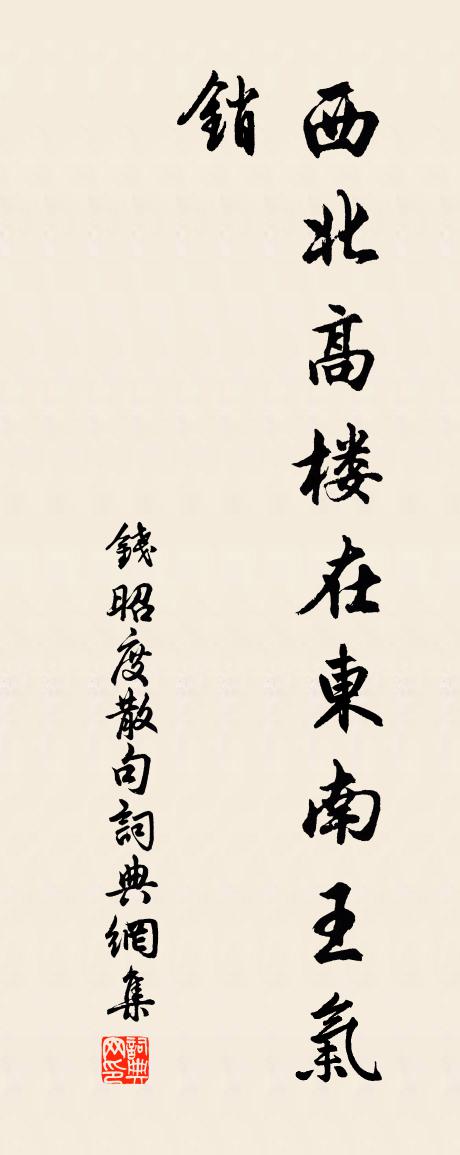 西北高楼在東南王氣
銷
錢昭度散句詞典網集
詞典网印